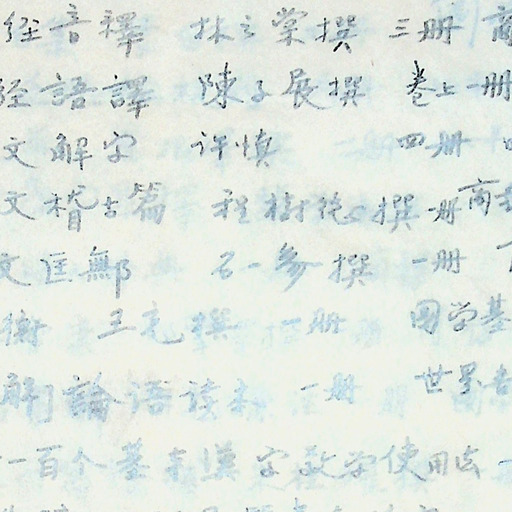 经音釋 林之棠撰 三册 商
经語譯 陳子展撰 卷上一册
文解字 许慎 四册
文稽古篇 程樹德撰 一册 商
文匡鄦 石一參撰 一册
衡 王充撰 一册 国学基
解論语读本 一册 世界书
一百个基本漢字教学使用法